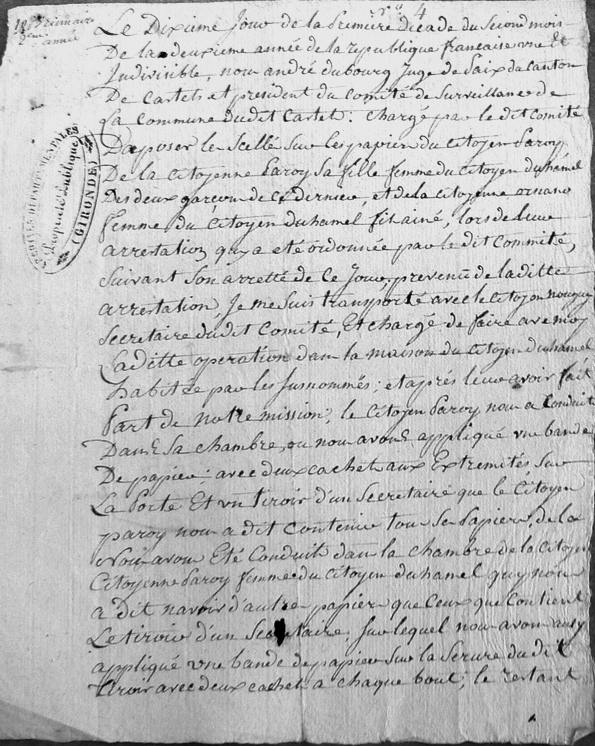 n.° 4
10 Brumaire
2eme année
Le Dixième Jour de la première décade du second mois
De la deuxième année de la republique francaise une Et
Indivisible, nous andré dubourg Juge de paix du canton
De Castets et president du comité de Surveillance de
La Commune dudit Castet: Chargé par le dit Comité
D'aposer le Scellé sur les papiers du Citoyen Paroy
De la Citoyenne Paroy Sa fille femme du Citoyen duhamel
Des deux garcons de Ce dernier, et de la Citoyenne
femme du Citoyen duhamel fils ainé, lors de leur
arrestation, quy a eté ordonnée par le dit Committé,
Suivant Son arretté de Ce Jour, prevenu de la ditte
arrestation, Je me suis transporté avec le Citoyen
Secretaire dudit Comité, Et chargé de faire avec moy
Laditte operation dans la maison du Citoyen duhamel
habitée par les susnommés; et aprés leur avoir fait
Part de notre mission, le Citoyen Paroy nous a conduit
Dans Sa chambre, ou nous avons appliqué une bande
De papier; avec deux cachet aux Extremités, Sur
La Porte Et un tiroir d'un Secretaire que le Citoyen
paroy nous a dit contenir tous Ses Papiers, de la
Nous avons Eté Conduit dans la chambre de la Citoyen
Citoyenne Paroy femme du Citoyen duhamel quy nous
a dit n'avoir d'autre papier que Ceux que Contient
Le tiroir d'un Secretaire, sur lequel nous avons aussy
appliqué une bande de papier sur la serure du dit
tiroir avec deux cachet a chaque bout; le restant
ARCHIVES DÉPARTEMENTALES
Propriété Publique
(GIRONDE)